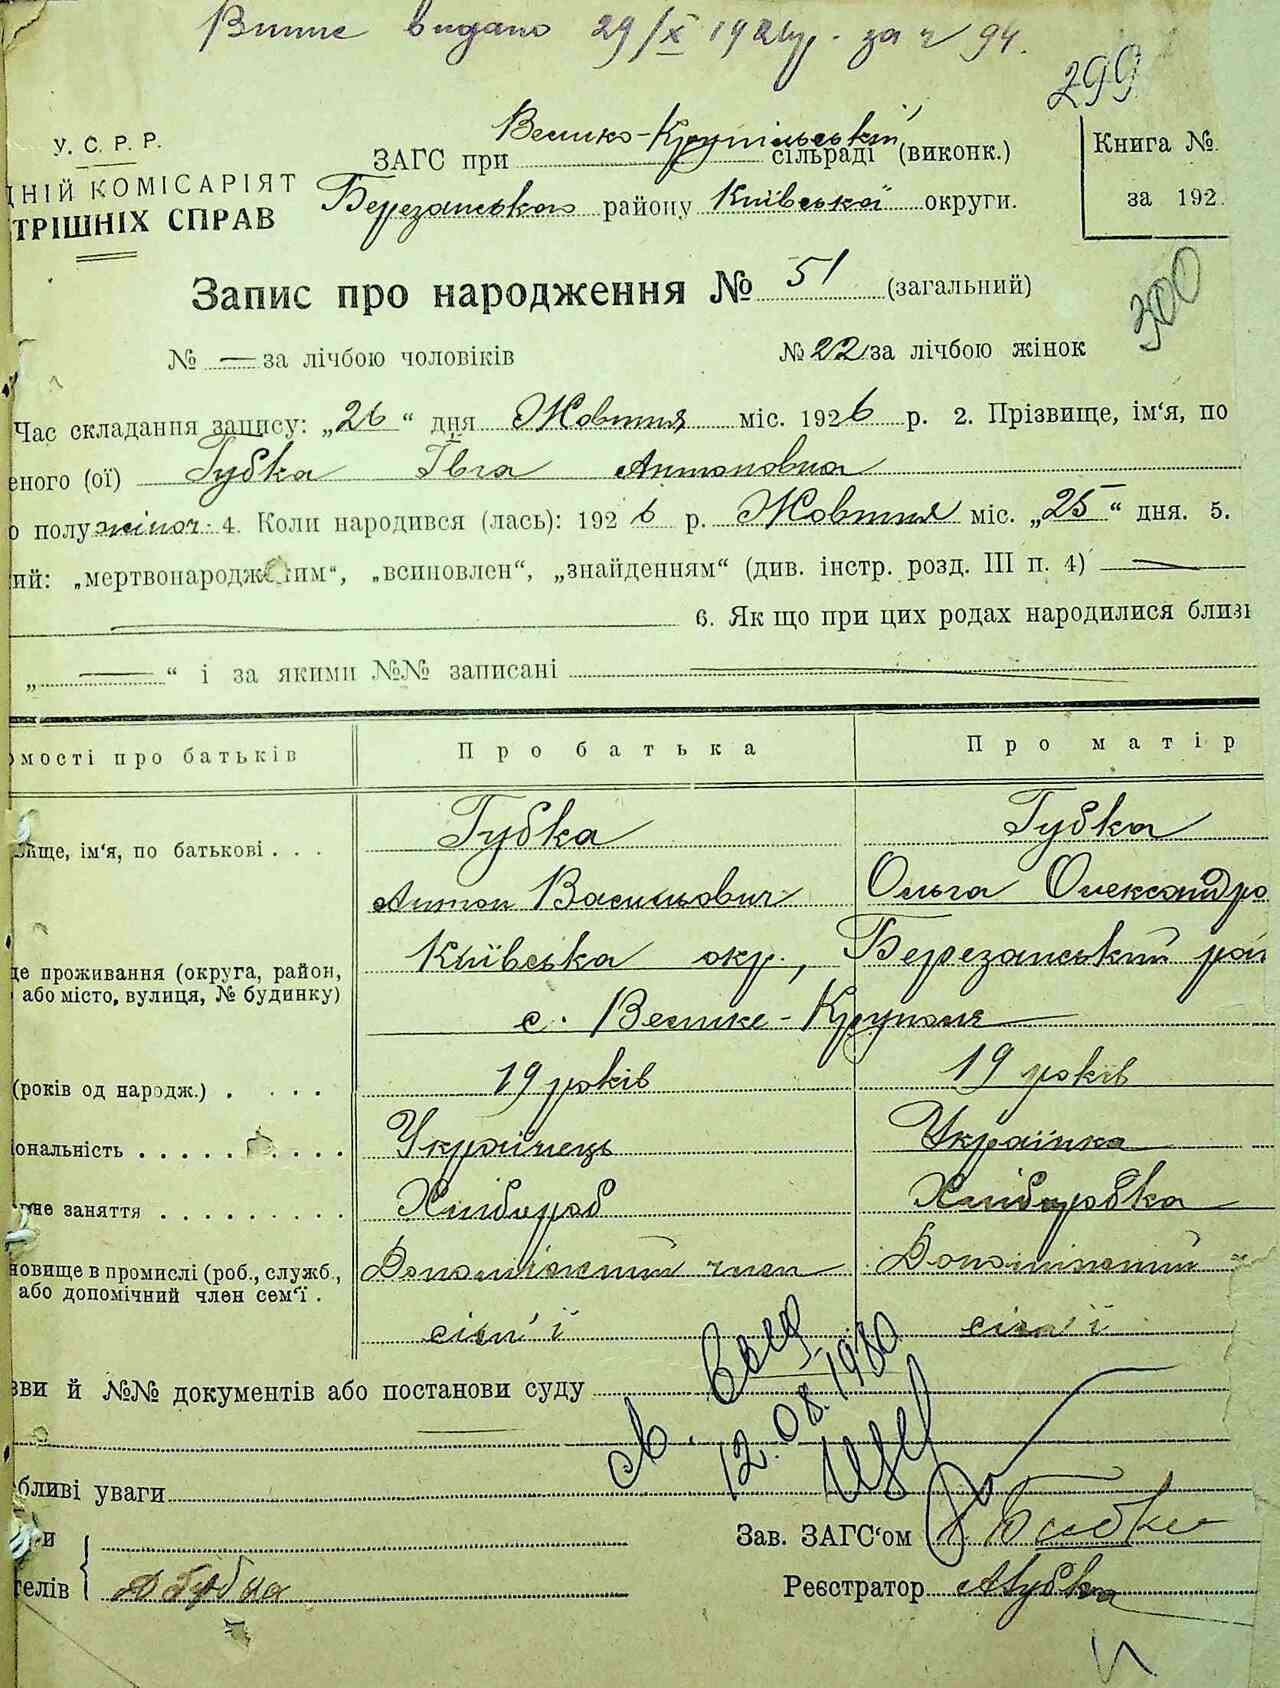 Випис видано 29/X 1926 р. за ч 94.
299
У. С. Р. Р.
ДНІЙ КОМІСАРІЯТ
ТРІШНІХ СПРАВ
ЗАГС при Велико-Крупільській сільраді (виконк.)
Березанського району Київської округи.
Книга №
за 192
Запис про народження № 51 (загальний)
300
№ — за лічбою чоловіків № 22 за лічбою жінок
Час складання запису: „26“ дня Жовтня міс. 1926 р. 2. Прізвище, ім‘я, по
еного (ої) Губка Ївга Антоновна
о полу жіноч. 4. Коли народився (лась): 1926 р. Жовтня міс. „25“ дня. 5.
ий: „мертвонародженим“, „всиновлен“, „знайденням“ (див. інстр. розд. III п. 4) —
6. Як що при цих родах народилися близ
„ — “ і за якими №№ записані
омості про батьків Про батька Про матір
вище, ім‘я, по батькові . . . Губка Губка
Антон Васильович Ольга Олександро
де проживання (округа, район, Київська окр., Березанський рай
або місто, вулиця, № будинку)
с. Велике-Крупполя
(років од народж.) . . . . 19 років 19 років
ональність . . . . . . . . . Українець Українка
вне заняття . . . . . . . . . Хлібороб Хліборобка
новище в промислі (роб., служб., Допоміжний член Допоміжний
або допомічний член сем‘ї . сім'ї сім'ї
зви й №№ документів або постанови суду
12.08.1980
бливі уваги
Зав. ЗАГС‘ом
телів Реєстратор АГубка